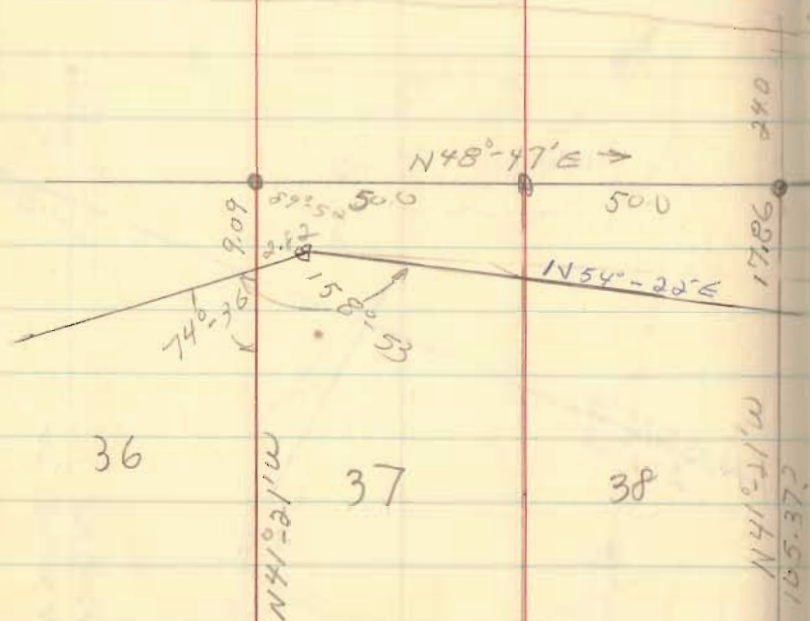 24.0
N48°-47'E →
50.0
50.0
9.09
17.86
N54°-22'E
74°-36'
158°-53
36
37
38
N41°-21'W
N41°-21'W